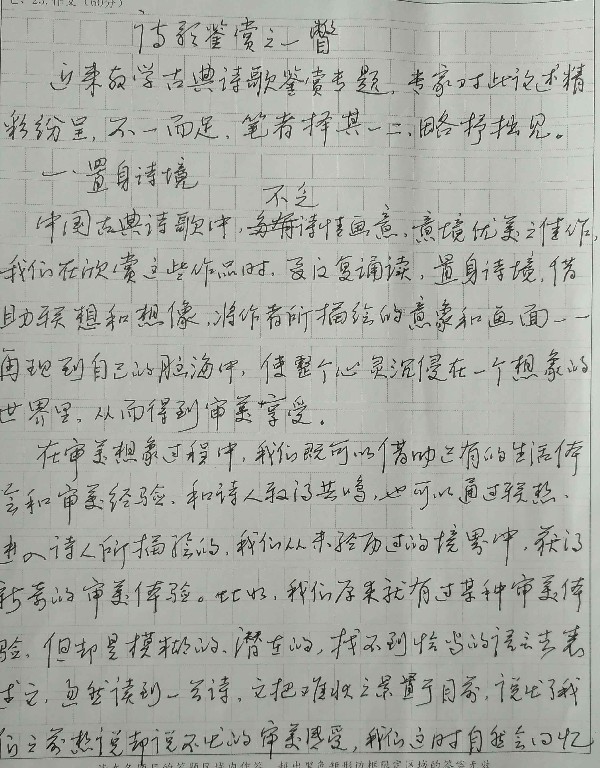 七、23.作文（60分）
诗歌鉴赏之一瞥
近来教学古典诗歌鉴赏专题，专家对此论述精
彩纷呈，不一而足，笔者择其一二，略抒拙见。
一、置身诗境
不乏
中国古典诗歌中，诗情画意，意境优美之佳作，
我们在欣赏这些作品时，反复诵读，置身诗境，借
助联想和想像，将作者所描绘的意象和画面一一
再现到自己的脑海中，使整个心灵沉侵在一个想象的
世界里，从而得到审美享受。
在审美想象过程中，我们既可以借助已有的生活体
会和审美经验，和诗人取得共鸣，也可以通过联想，
进入诗人所描绘的，我们从未经历过的境界中，获得
新奇的审美体验。比如，我们原来就有过某种审美体
验，但却是模糊的、潜在的，找不到恰当的语言去表
述它，忽然读到一首诗，它把难状之景置于目前，说出了我
们之前想说却说不出的审美感受，我们这时自然会回忆